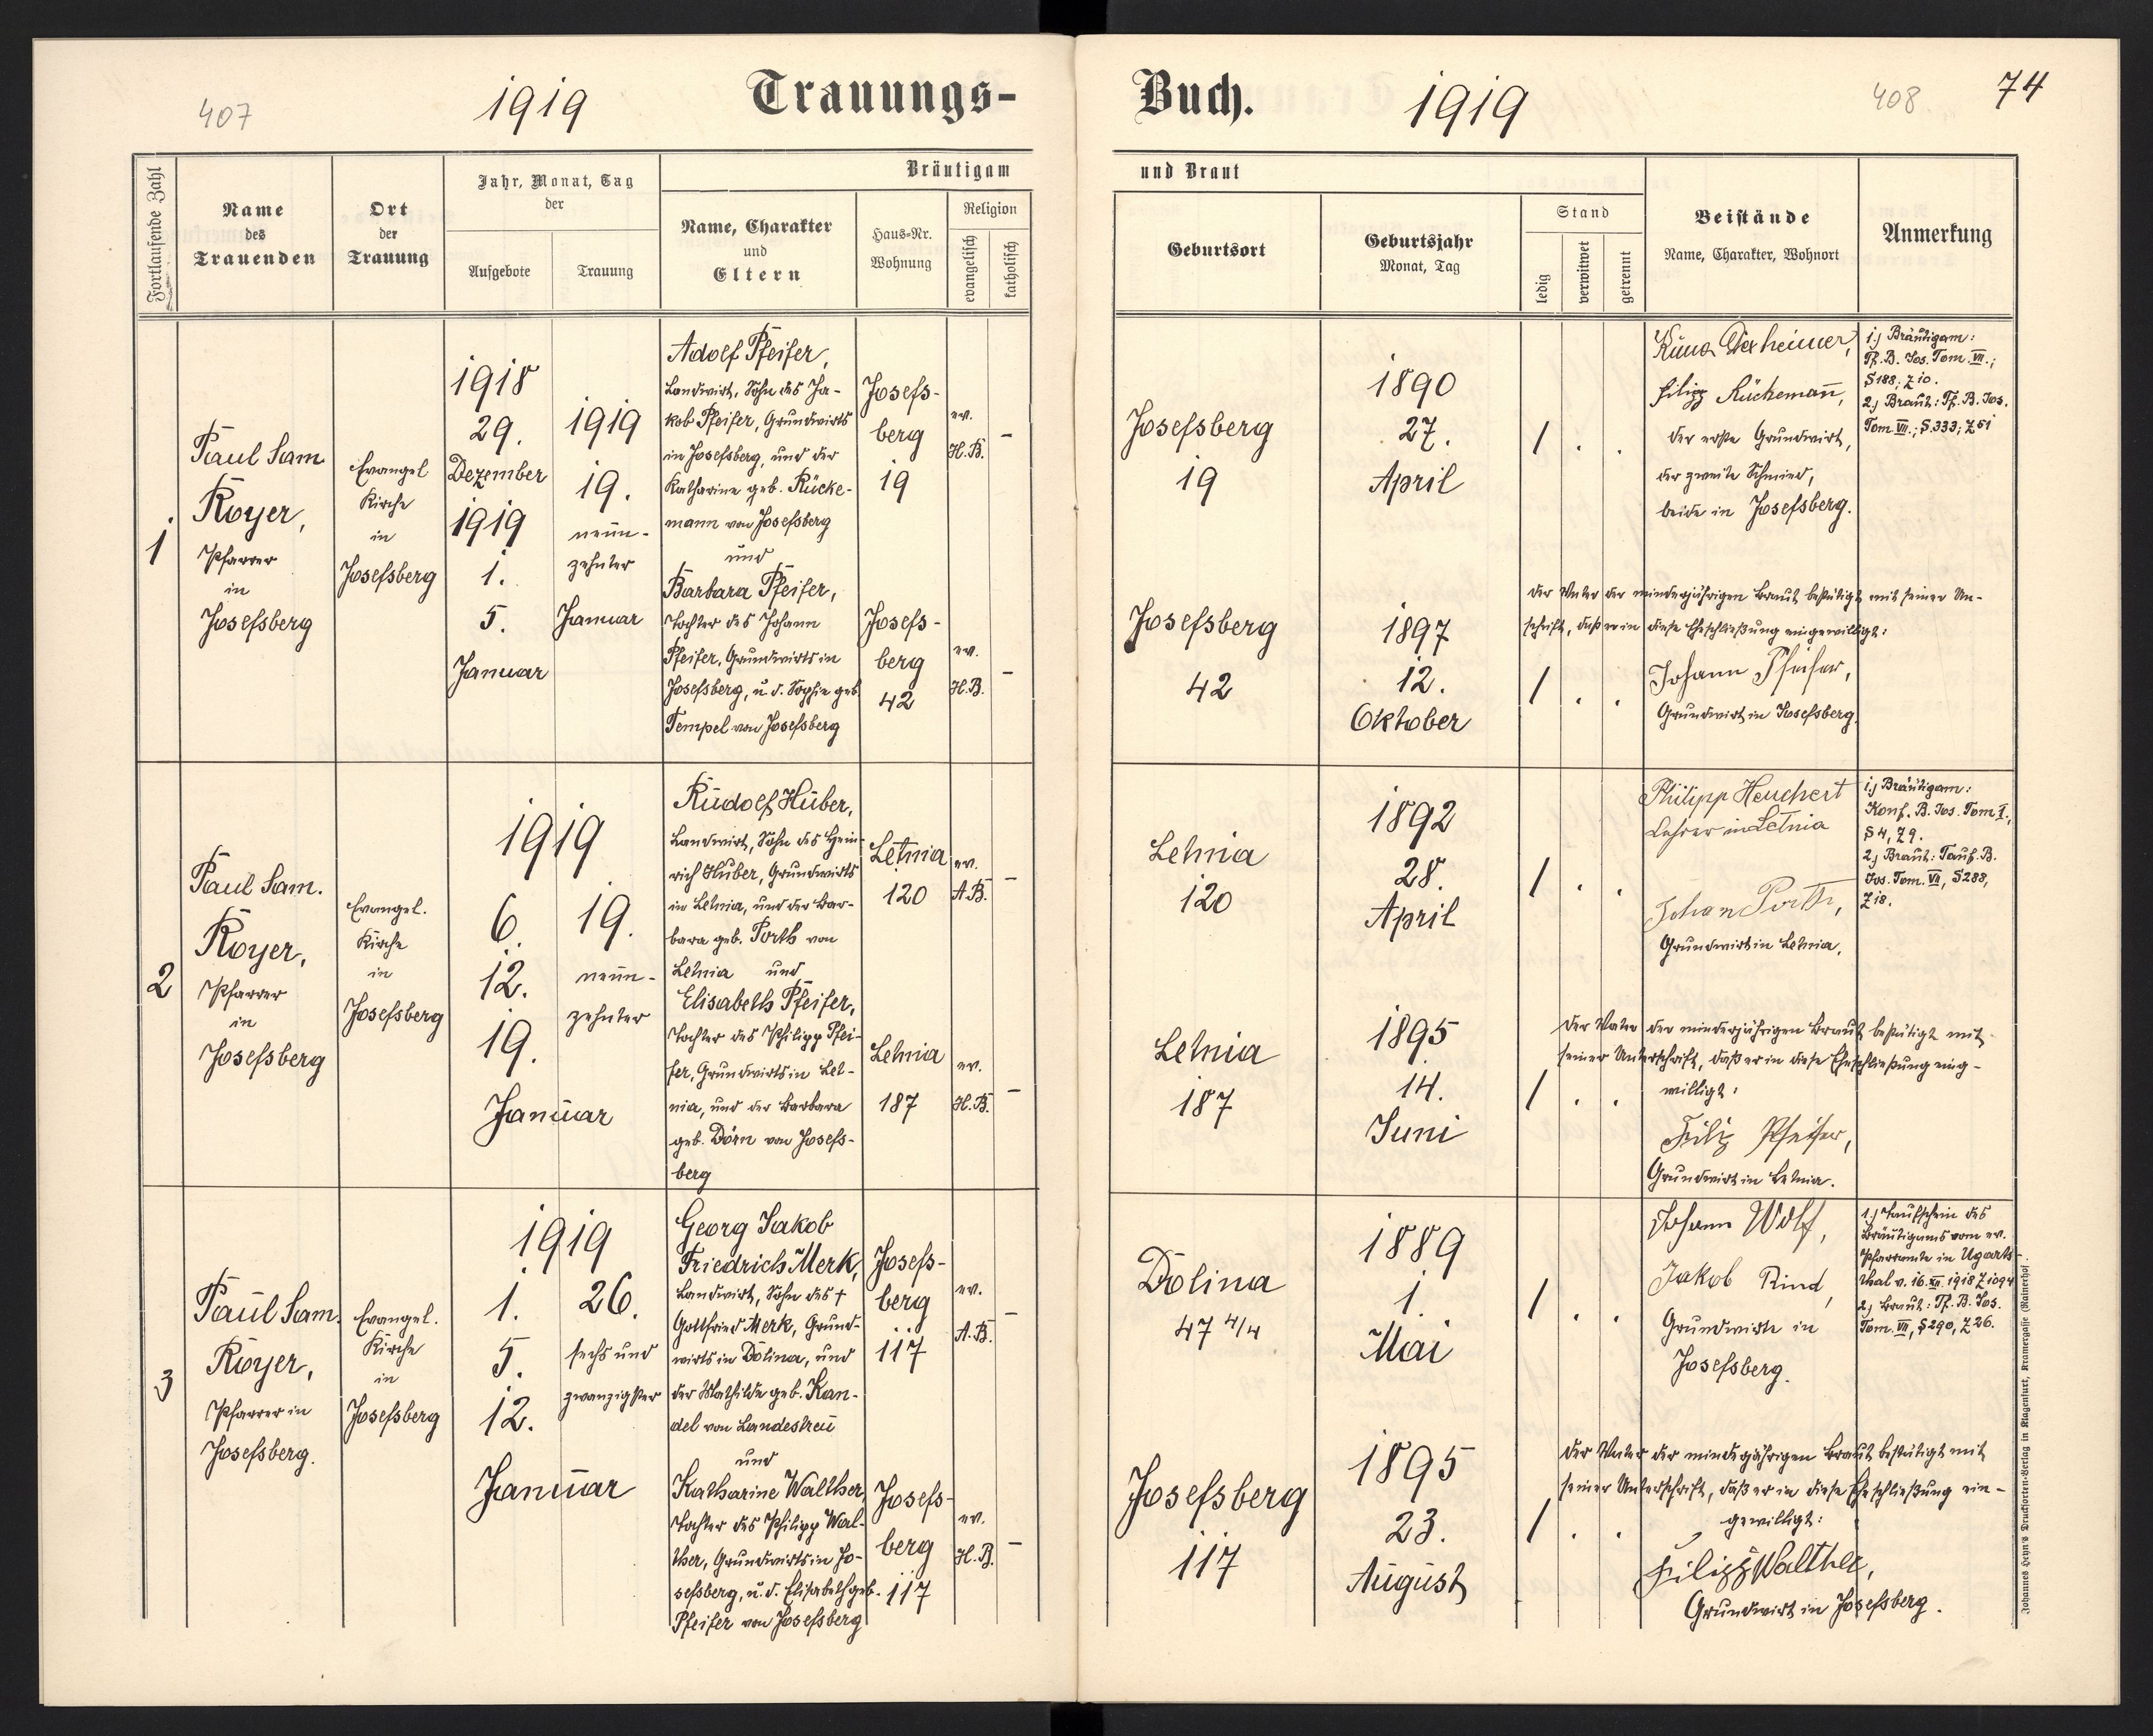 407
1919
Trauungs-
Fortlaufende Zahl
Name
des
Trauenden
Ort
der
Trauung
Jahr, Monat, Tag
der
Aufgebote
Trauung
Bräutigam
Name, Charakter
und
Eltern
Haus-Nr.
Wohnung
Religion
evangelisch
katholisch
1
Paul Sam
Royer,
Pfarrer
in
Josefsberg
Evangel
Kirche
in
Josefsberg
1918
29.
Dezember
1919
1.
5.
Januar
1919
19.
neun-
zehnter
Januar
Adolf Pfeifer,
Landwirt, Sohn des Ja-
kob Pfeifer, Grundwirts
in Josefsberg, und der
Katharine geb. Rücke-
mann von Josefsberg
und
Barbara Pfeifer,
Tochter des Johann
Pfeifer, Grundwirts in
Josefsberg, u. d. Sophie geb
Tempel von Josefsberg
Josefs-
berg
19
ev.
H.B.
–
Josefs-
berg
42
ev.
H.B.
–
2
Paul Sam.
Royer,
Pfarrer
in
Josefsberg
Evangel.
Kirche
in
Josefsberg
1919
6.
12.
19.
Januar
19.
neun-
zehnter
Rudolf Huber,
Landwirt, Sohn des Hein-
rich Huber, Grundwirts
in Letnia, und der Bar-
bara geb. Porth von
Letnia und
Elisabeth Pfeifer,
Tochter des Philipp Pfei-
fer, Grundwirts in Let-
nia, und der Barbara
geb. Dörn von Josefs-
berg
Letnia
120
ev.
A.B.
–
Letnia
187
ev.
H.B.
–
3
Paul Sam.
Royer,
Pfarrer in
Josefsberg.
Evangel.
Kirche
in
Josefsberg
1919
1.
5.
12.
Januar
26.
sechs und
zwanzigster
Georg Jakob
Friedrich Merk,
Landwirt, Sohn des †
Gottfried Merk, Grund-
wirts in Dolina, und
der Mathilde geb. Kan-
del von Landestreu
und
Katharine Walther,
Tochter des Philipp Wal-
ther, Grundwirts in Jo-
sefsberg, u. d. Elisabeth geb.
Pfeifer von Josefsberg
Josefs-
berg
117
ev.
A.B.
–
Josefs-
berg
117
ev.
H.B.
–
Buch.
1919
408
74
und Braut
Geburtsort
Geburtsjahr
Monat, Tag
Stand
ledig
verwitwet
getrennt
Beistände
Name, Charakter, Wohnort
Anmerkung
Josefsberg
19
1890
27.
April
1 . .
Filipp Rückemann,
der erste Grundwirt,
der zweite Schmied,
beide in Josefsberg.
1.) Bräutigam:
Tf. B. Jos. Tom. VII.;
S 188; Z 10.
2.) Braut: Tf. B. Jos.
Tom. VII.; S. 333; Z 51
Josefsberg
42
1897
12.
Oktober
1 . .
Der Vater der minderjährigen Braut bestätigt mit seiner Un-
schrift, daß er in diese Eheschließung eingewilligt:
Johann Pfeifer,
Grundwirt in Josefsberg.
Letnia
120
1892
28.
April
1 . .
Philipp Heuchert
Lehrer in Letnia
Johan Porth,
Grundwirt in Letnia.
1.) Bräutigam:
Konf. B. Jos. Tom I.,
S 4, Z 9.
2.) Braut: Tauf. B.
Jos. Tom. VII, S 288,
Z 18.
Letnia
187
1895
14.
Juni
1 . .
Der Vater der minderjährigen Braut bestätigt mit
seiner Unterschrift, daß er in diese Eheschließung eing-
willigt:
Filip Pfeifer,
Grundwirt in Letnia.
Dolina
47 4/4
1889
1.
Mai
1 . .
Johann Wolf,
Jakob Rind,
Grundwirte in
Josefsberg.
1.) Taufschein des
Bräutigams vom ev.
Pfarramte in Ugarts-
thal v. 16. XII. 1918 Z 1094
2.) Braut: Tf. B. Jos.
Tom. VII, S 290, Z 26.
Josefsberg
117
1895
23.
August
1 . .
Der Vater der minderjährigen Braut bestätigt mit
seiner Unterschrift, daß er in diese Eheschließung ein-
gewilligt:
Filipp Walther,
Grundwirt in Josefsberg.
Johannes Heyn's Drucksorten-Verlag in Klagenfurt, Kramergasse (Rainerhof).